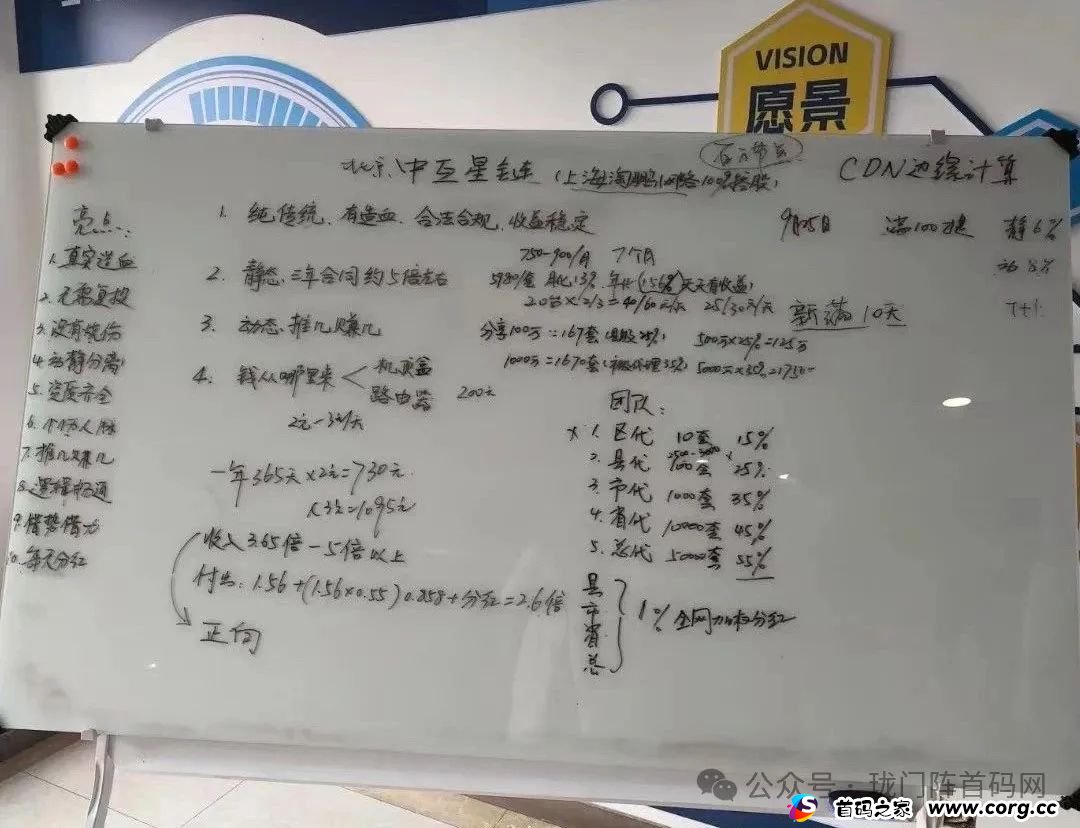 VISION
愿景
百万节点
北京、中互星链（上海淘鹏网络10%控股） CDN边缘计算
亮点：
1. 真实造血
2. 无需复投
3. 没有
4. 动静分离
5. 资质齐全
6. 人脉
7. 推几赚几
8.
9. 借势借力
10. 每天分红
1. 纯传统、有造血、合法合规、收益稳定
750-900/月 7个月
2. 静态、三年合同约5倍左右 5980/套 月化13% 年化(156%)天天有收益
20台×2/3=40/60元/天 25/30元/天
3. 动态、推几赚几 分享100万=167套 25% 500万×25%=125万
1000万=1670套 代理35% 5000万×35%=1750
4. 钱从哪里来 机顶盒
路由器 200元
2元-3元/天
9月25日 满100提 静6%
动 %
新满10天 T+1
一年365天×2元=730元
×3元=1095元
收入3.65倍-5倍以上
付出：1.56+(1.56×0.55)0.858+分红=2.6倍
正向
团队：
× 1. 区代 10套 15%
2. 县代 100套 25%
3. 市代 1000套 35%
4. 省代 10000套 45%
5. 总代 50000套 55%
县
市
省
总
1% 全网加权分红
公众号—珑门阵首码网
首码之家 www.corg.cc